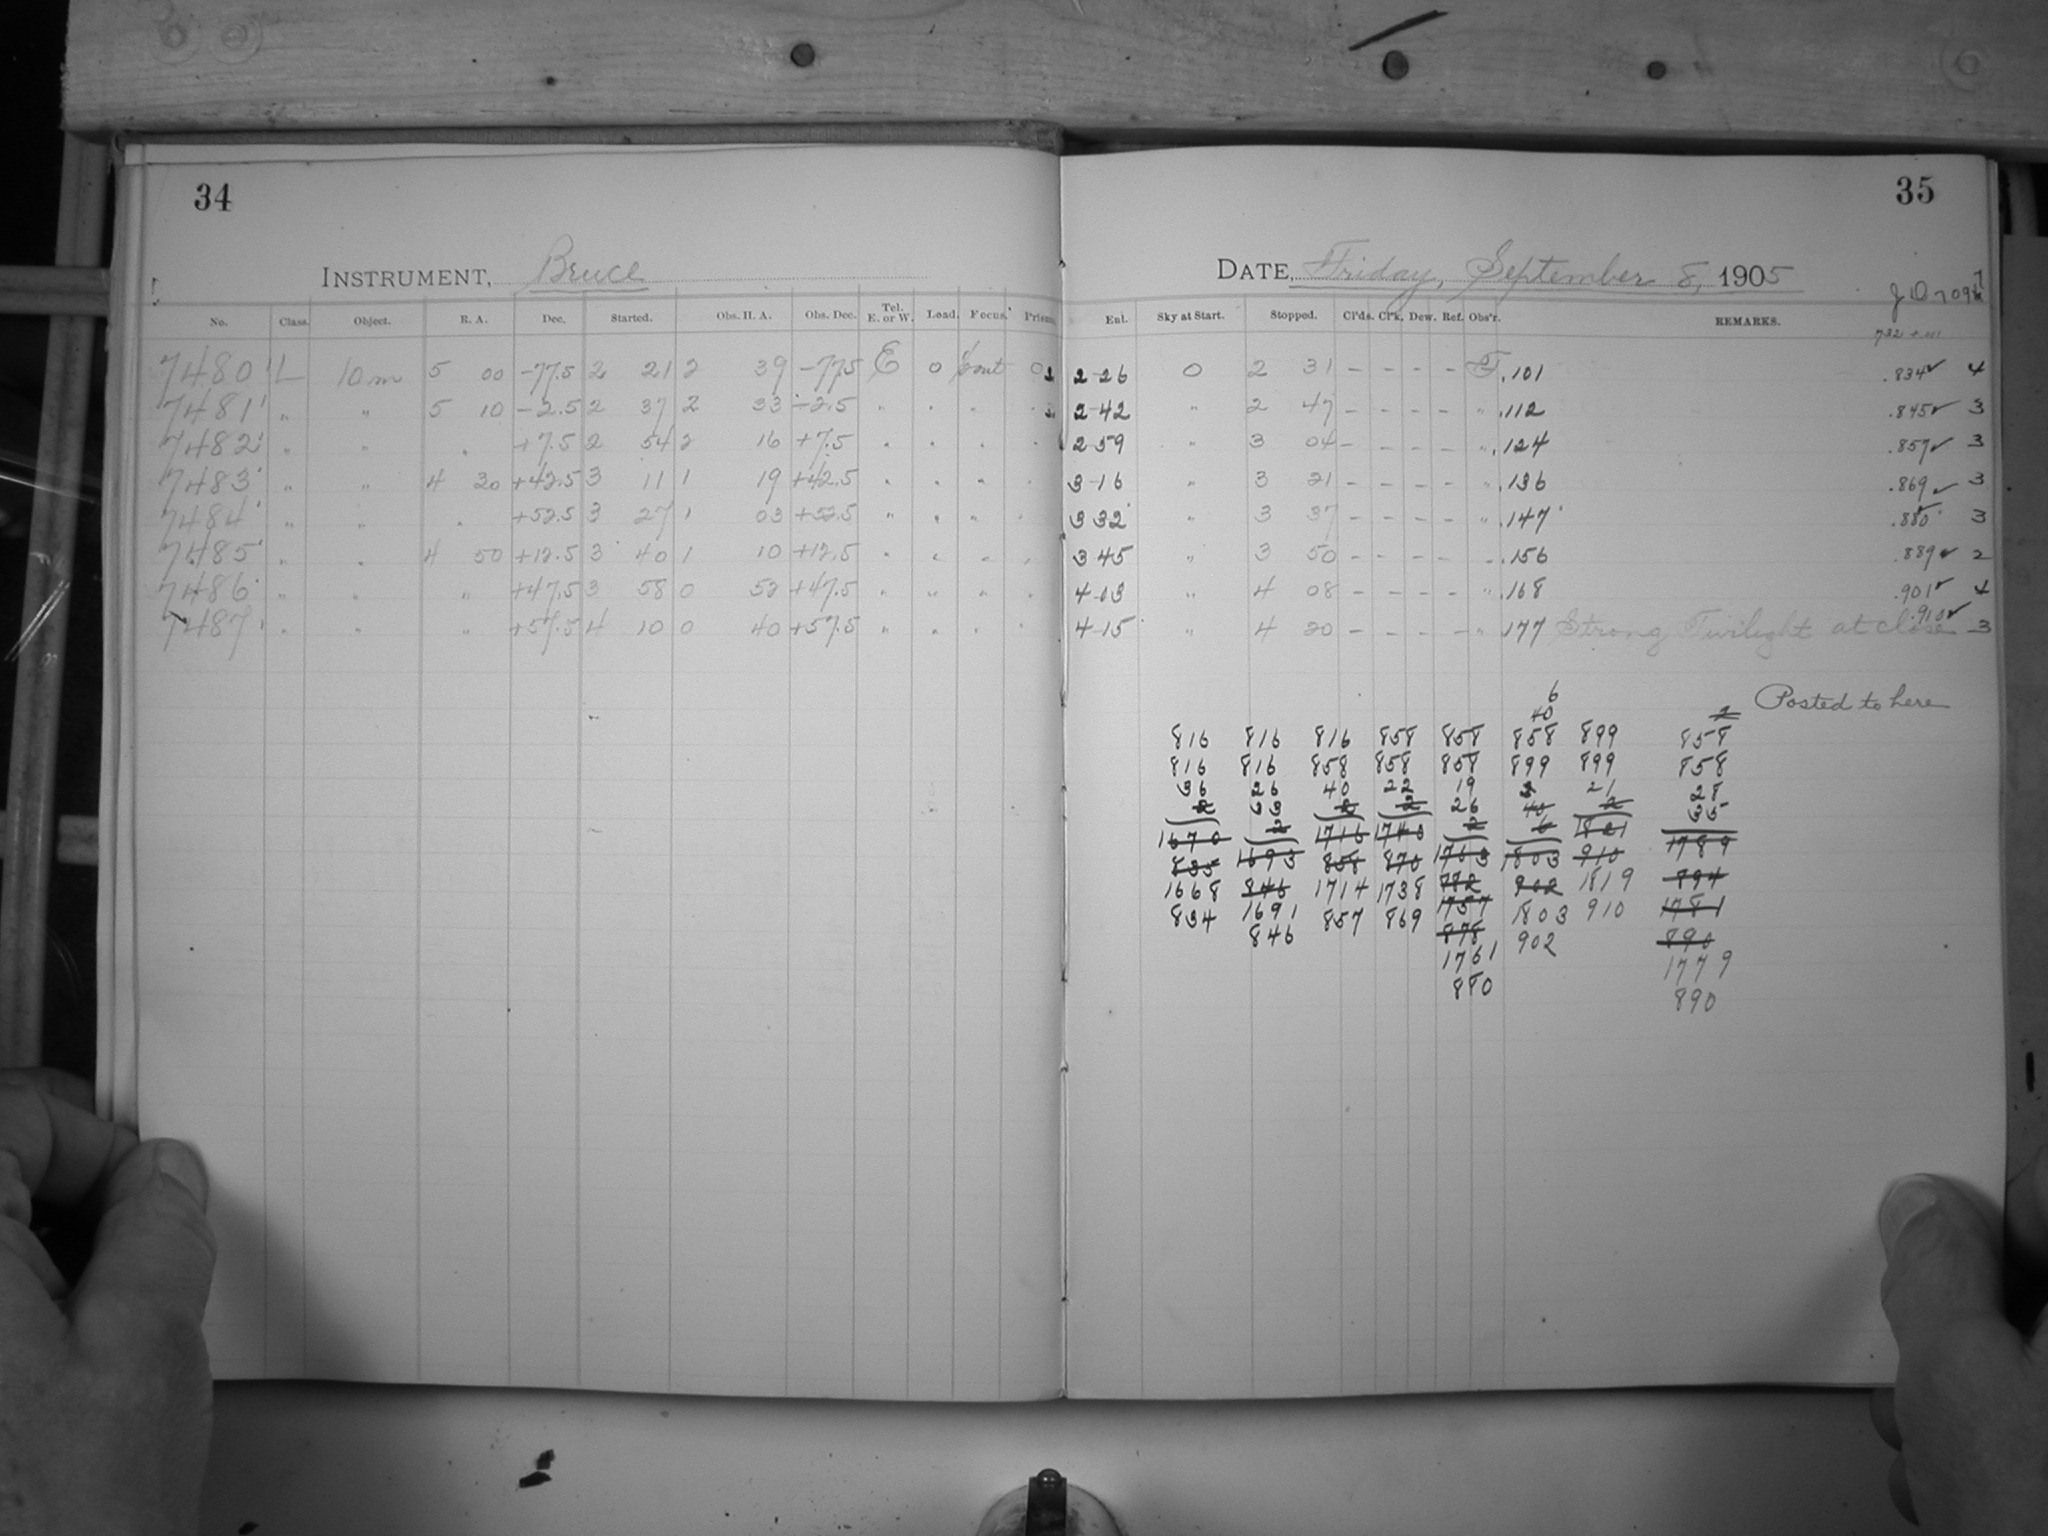 34
INSTRUMENT, Bruce
No. Class. Object. R. A. Dec. Started. Obs. H. A. Obs. Dec. Tel. E. or W. Load. Focus. Prism.
7480 L 10m 5 00 -77.5 2 21 2 39 -77.5 E 0 Cont 0
7481 " " 5 10 -2.5 2 37 2 33 -2.5 " " " "
7482 " " " +7.5 2 54 2 16 +7.5 " " " "
7483 " " 4 30 +42.5 3 11 1 19 +42.5 " " " "
7484 " " " +52.5 3 27 1 03 +52.5 " " " "
7485 " " 4 50 +12.5 3 40 1 10 +12.5 " " " "
7486 " " " +47.5 3 58 0 52 +47.5 " " " "
7487 " " " +57.5 4 10 0 40 +57.5 " " " "
35
DATE, Friday, September 8, 1905
Ent. Sky at Start. Stopped. Cl'ds. Cl'k. Dew. Ref. Obs'r. REMARKS.
732 +.001
2-26 0 2 31 - - - - F .101 .834✓ 4
2-42 " 2 47 - - - - " .112 .845✓ 3
2-59 " 3 04 - - - - " .124 .857✓ 3
3-16 " 3 21 - - - - " .136 .869✓ 3
3 32 " 3 37 - - - - " .147 .880 3
3 45 " 3 50 - - - - .156 .889✓ 2
4-03 " 4 08 - - - - " .168 .901✓ 4
4-15 " 4 20 - - - - " .177 Strong Twilight at close .910✓ 3
6
40 2 Posted to here
816 816 816 858 858 858 899 858
816 816 858 858 858 899 899 858
36 26 40 22 19 2 21 28
2 33 2 2 26 40 2 35
1670 2 1716 1740 2 6 1821 1789
835 1693 858 870 1763 1803 910 894
1668 846 1714 1738 902 1819 1781
834 1691 857 869 1757 1803 910 890
846 878 902 1779
1761 890
880